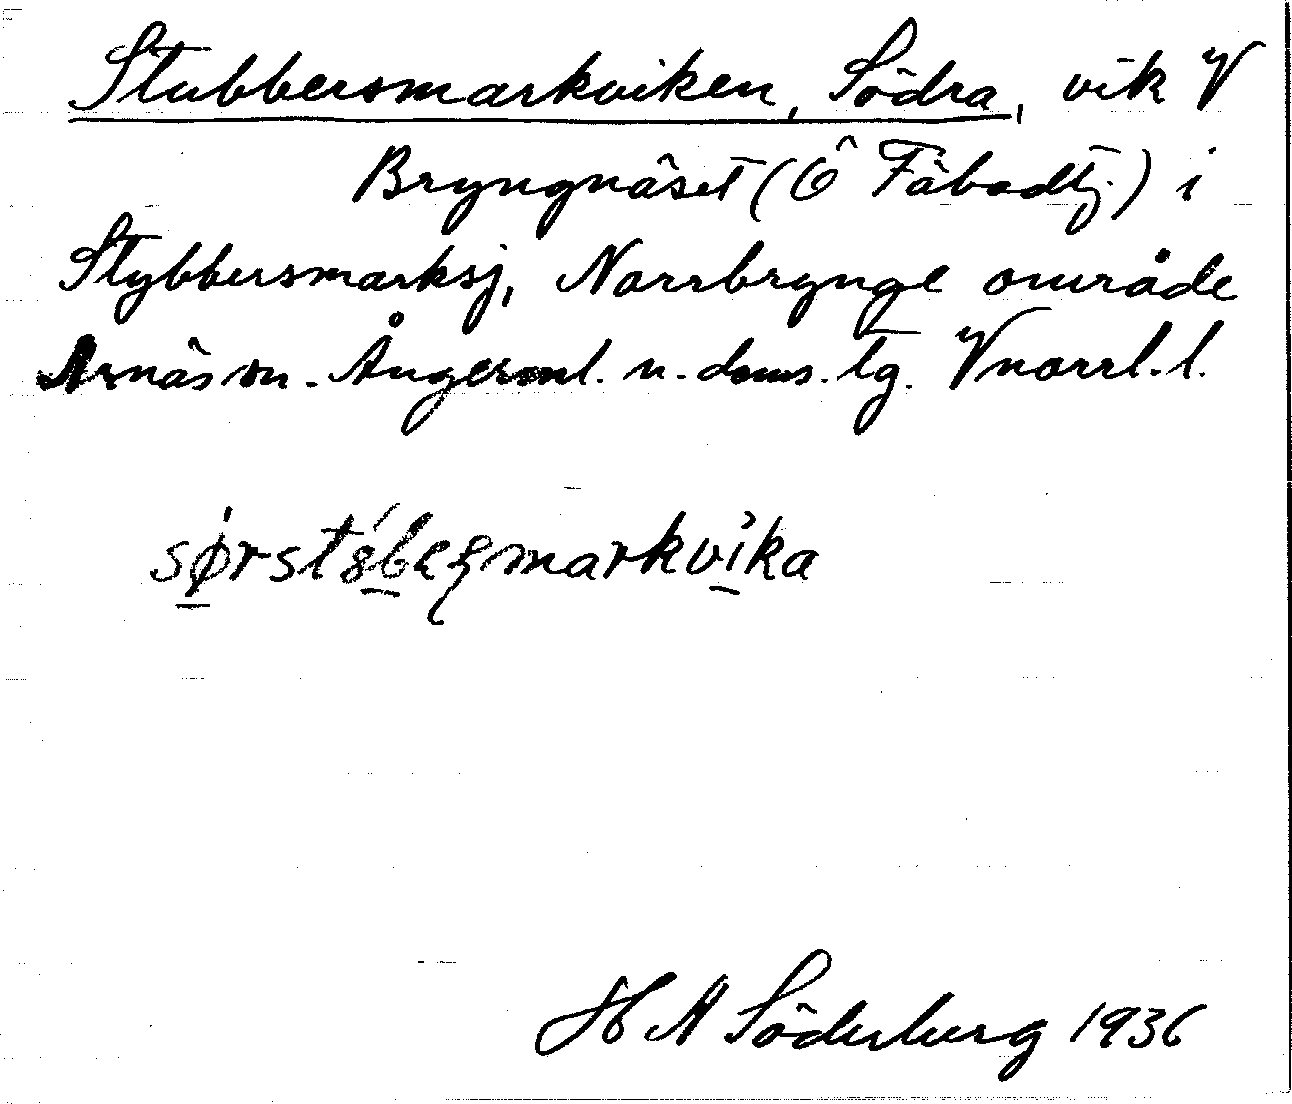 Stubbersmarkviken, Södra, vik V
Bryngnäset (Ö Fäbodtj.) i
Stybbersmarksj, Norrbrynge område
Arnäs sn. Ångerml. n. doms. tg. Vnorrl. l.
sørstøbeʂmarkvika
H A Söderberg 1936